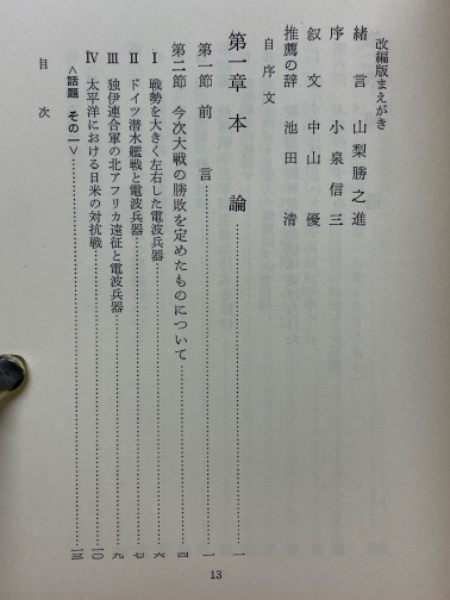 改編版まえがき
緒言 山梨勝之進
序 小泉信三
叙文 中山優
推薦の辞 池田清
自序文
第一章 本論……一
第一節 前言……一
第二節 今次大戦の勝敗を定めたものについて……四
Ⅰ 戦勢を大きく左右した電波兵器……六
Ⅱ ドイツ潜水艦戦と電波兵器……七
Ⅲ 独伊連合軍の北アフリカ遠征と電波兵器……九
Ⅳ 太平洋における日米の対抗戦……一〇
<話題 その一>……一三
目次
13